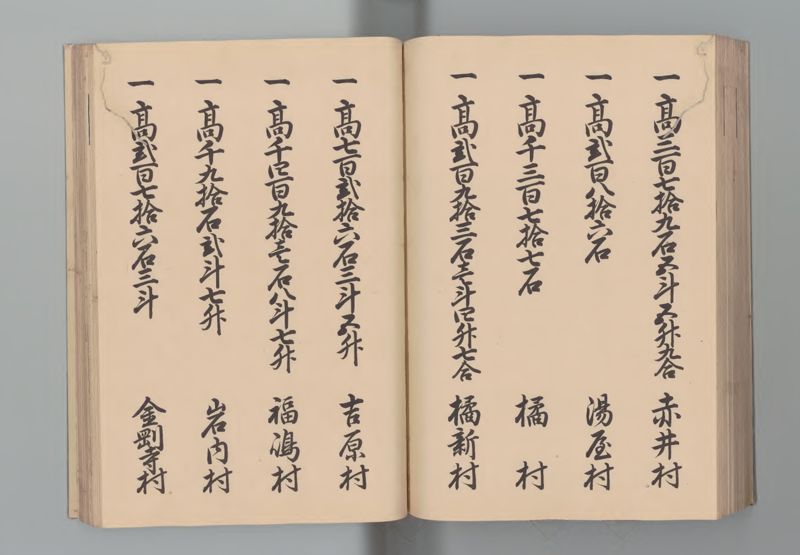 一 高三百七拾九石五斗五升九合 赤井村
一 高弐百八拾六石 湯屋村
一 高千三百七拾七石 橘村
一 高弐百九拾三石壱斗四升七合 橘新村
一 高七百弐拾六石三斗五升 吉原村
一 高千四百九拾壱石八斗七升 福嶋村
一 高千九拾石弐斗七升 岩内村
一 高弐百七拾六石三斗 金剛寺村